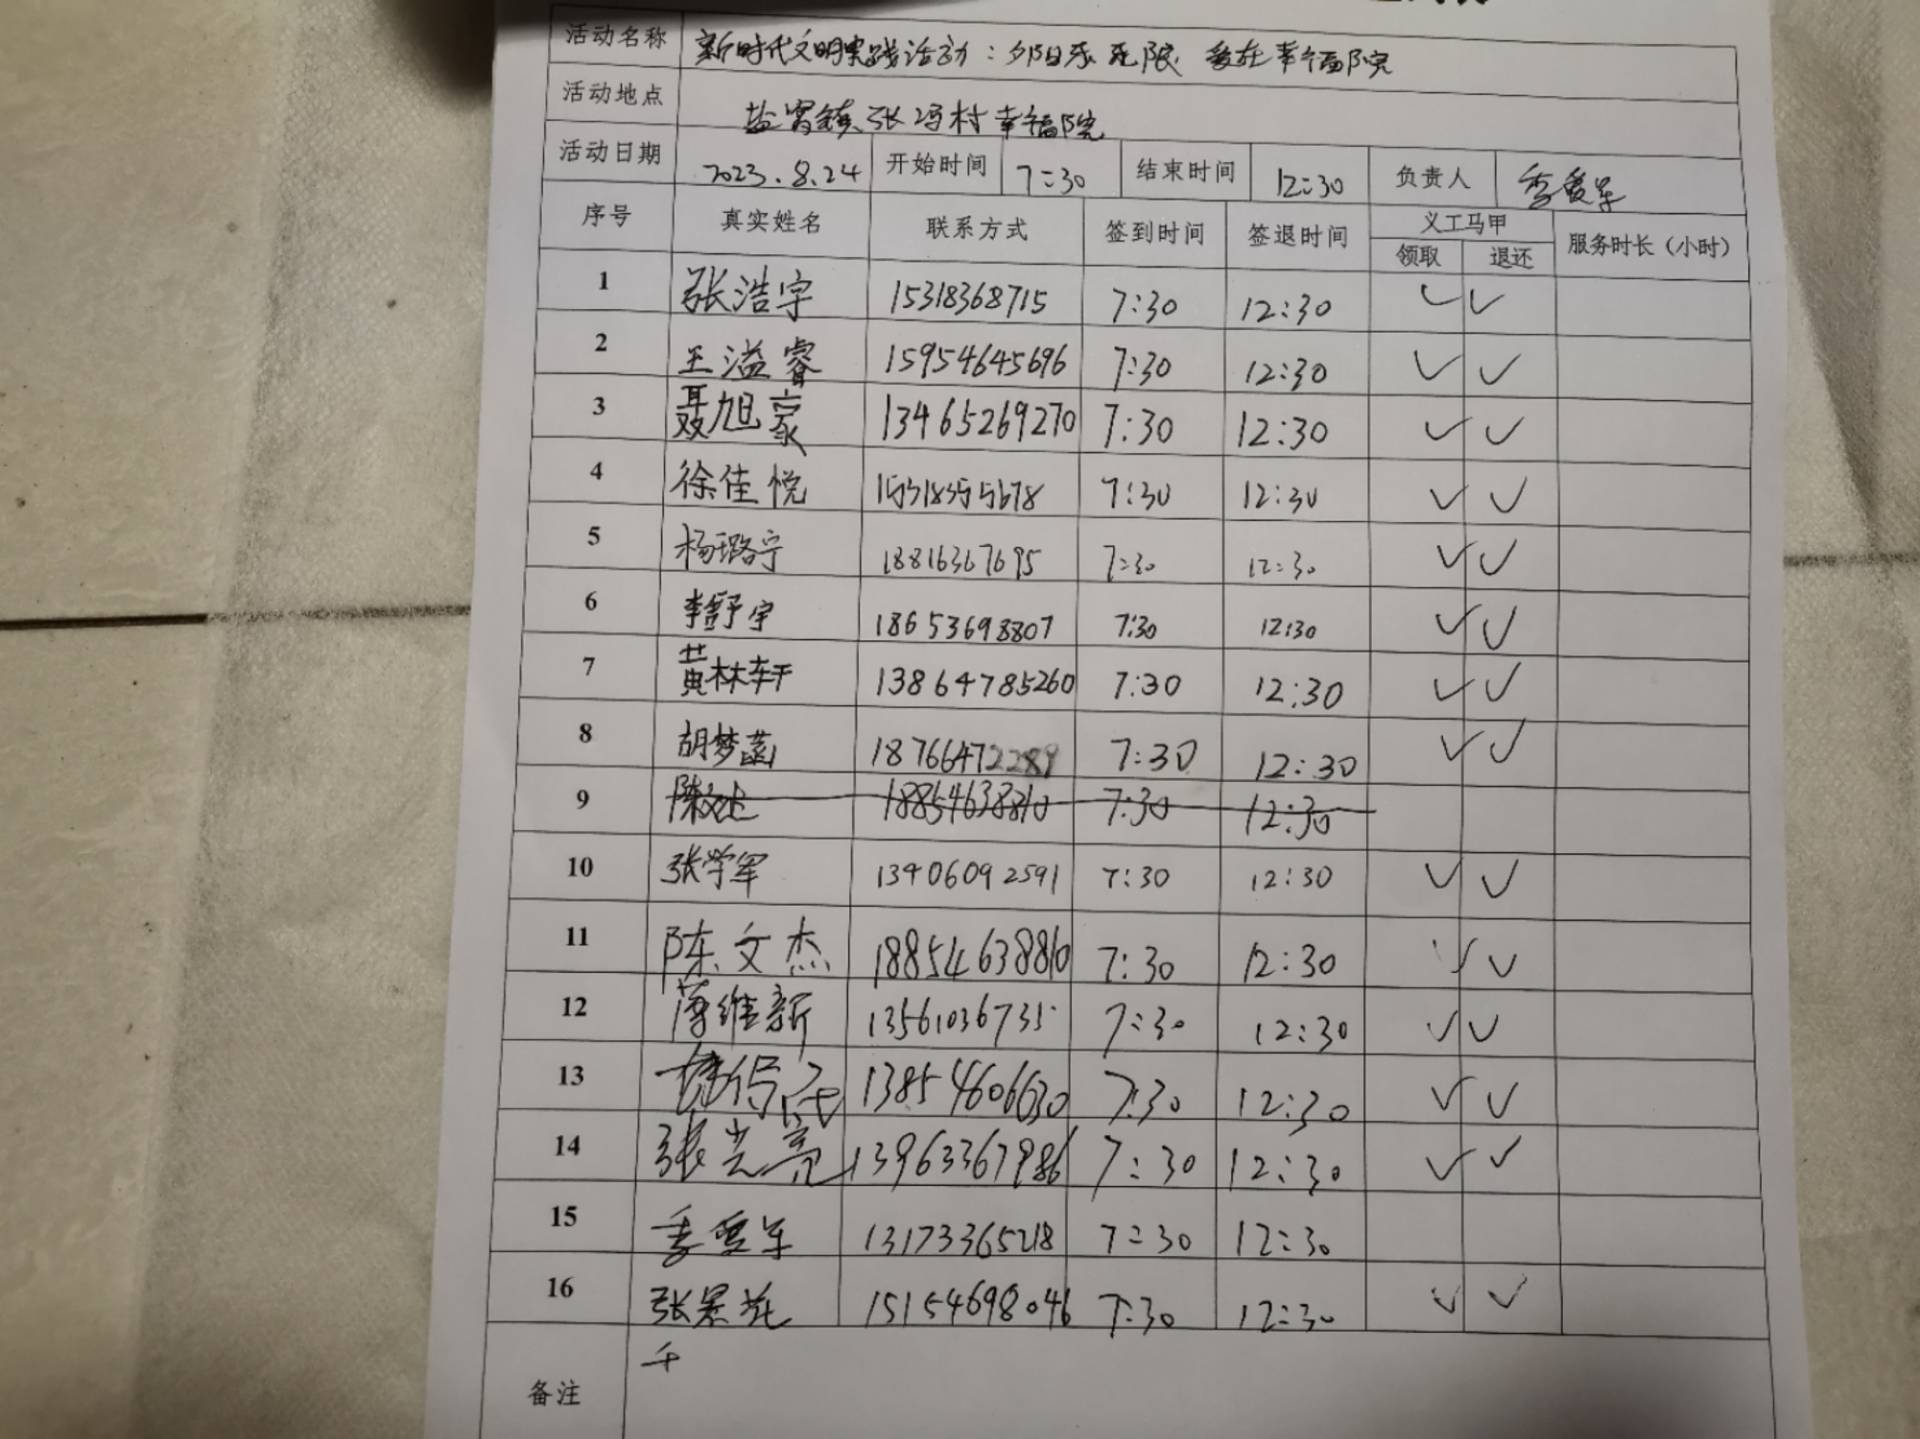 活动名称 新时代文明实践活动：夕阳乐无限 爱在幸福院
活动地点 盐窝镇张冯村幸福院
活动日期 2023.8.24 开始时间 7:30 结束时间 12:30 负责人 季爱军
序号 真实姓名 联系方式 签到时间 签退时间 义工马甲 服务时长（小时）
领取 退还
1 张浩宇 15318368715 7:30 12:30 ✓ ✓
2 王溢睿 15954645696 7:30 12:30 ✓ ✓
3 聂旭豪 13465269270 7:30 12:30 ✓ ✓
4 徐佳悦 15318355678 7:30 12:30 ✓ ✓
5 杨璐宁 18816367695 7:30 12:30 ✓ ✓
6 李舒宇 18653698807 7:30 12:30 ✓ ✓
7 黄林轩 13864785260 7:30 12:30 ✓ ✓
8 胡梦菡 18766472289 7:30 12:30 ✓ ✓
9 18854638810 7:30 12:30
10 张学军 13406092591 7:30 12:30 ✓ ✓
11 陈文杰 18854638810 7:30 12:30 ✓ ✓
12 薄维新 13561036735 7:30 12:30 ✓ ✓
13 13854606630 7:30 12:30 ✓ ✓
14 张光亮 13963367986 7:30 12:30 ✓ ✓
15 季爱军 13173365218 7:30 12:30
16 张景花 15154698046 7:30 12:30 ✓ ✓
备注